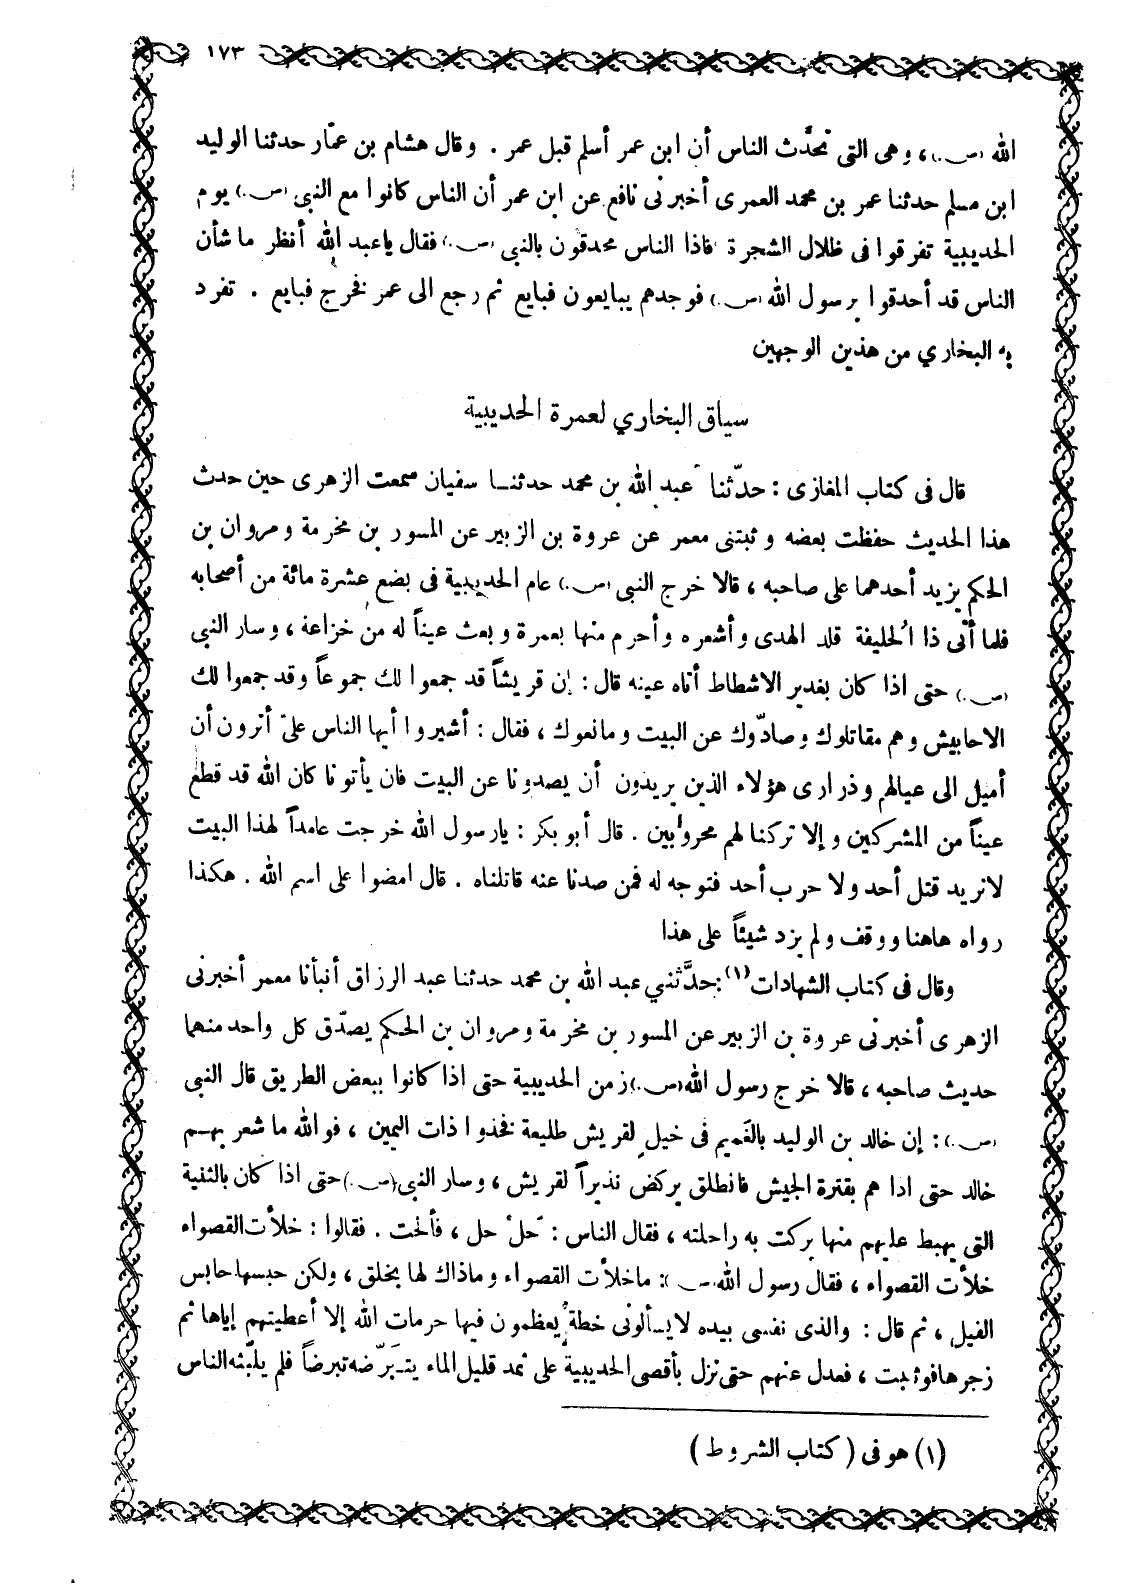 ١٧٣
الله (ص.)، وهى التى تحدَّث الناس أن ابن عمر أسلم قبل عمر . وقال هشام بن عمّار حدثنا الوليد
ابن مسلم حدثنا عمر بن محمد العمرى أخبرنى نافع عن ابن عمر أن الناس كانوا مع النبى (ص.) يوم
الحديبية تفرقوا فى ظلال الشجرة فاذا الناس محدقون بالنبى (ص.) فقال ياعبد الله أنظر ماشأن
الناس قد أحدقوا برسول الله (ص.) فوجدهم يبايعون فبايع ثم رجع الى عمر فخرج فبايع . تفرد
به البخاري من هذين الوجهين
سياق البخاري لعمرة الحديبية
قال فى كتاب المغازى : حدّثنا عبد الله بن محمد حدثنـا سفيان سمعت الزهرى حين حدث
هذا الحديث حفظت بعضه وثبتنى معمر عن عروة بن الزبير عن المسور بن مخرمة ومروان بن
الحكم يزيد أحدهما على صاحبه ، قالا خرج النبى (ص.) عام الحديبية فى بضع عشرة مائة من أصحابه
فلما أتى ذا الحليفة قلد الهدى وأشعره وأحرم منها بعمرة وبعث عيناً له من خزاعة ، وسار النبى
(ص.) حتى اذا كان بغدير الاشطاط أتاه عينه قال : إن قريشاً قد جمعوا لك جموعاً وقد جمعوا لك
الاحابيش وهم مقاتلوك وصادّوك عن البيت ومانعوك ، فقال : أشيروا أيها الناس علىّ أترون أن
أميل الى عيالهم وذرارى هؤلاء الذين يريدون أن يصدونا عن البيت فان يأتونا كان الله قد قطع
عيناً من المشركين وإلا تركناهم محروبين . قال أبو بكر : يارسول الله خرجت عامداً لهذا البيت
لانريد قتل أحد ولا حرب أحد فتوجه له فمن صدنا عنه قاتلناه . قال امضوا على اسم الله . هكذا
رواه هاهنا ووقف ولم يزد شيئاً على هذا
وقال فى كتاب الشهادات(١) : حدَّثني عبد الله بن محمد حدثنا عبد الرزاق أنبأنا معمر أخبرنى
الزهرى أخبرنى عروة بن الزبير عن المسور بن مخرمة ومروان بن الحكم يصدّق كل واحد منهما
حديث صاحبه ، قالا خرج رسول الله (ص.) زمن الحديبية حتى اذا كانوا ببعض الطريق قال النبى
(ص.) : إن خالد بن الوليد بالغَميم فى خيل لقريش طليعة فخذوا ذات اليمين ، فوالله ماشعر بهـم
خالد حتى اذا هم بقترة الجيش فانطلق يركض نذيراً لقريش ، وسار النبى (ص.) حتى اذا كان بالثنية
التى يهبط عليهم منها بركت به راحلته ، فقال الناس : حَل حل ، فألحت . فقالوا : خلأت القصواء
خلأت القصواء ، فقال رسول الله (ص.) : ماخلأت القصواء وماذاك لها بخلق ، ولكن حبسها حابس
الفيل ، ثم قال : والذى نفسى بيده لايسألونى خطة يعظمون فيها حرمات الله إلا أعطيتهم إياها ثم
زجرها فوثبت ، فعدل عنهم حتى نزل بأقصى الحديبية على ثمد قليل الماء يتـبرّضه تبرضاً فلم يلبّثه الناس
(١) هو فى ( كتاب الشروط )